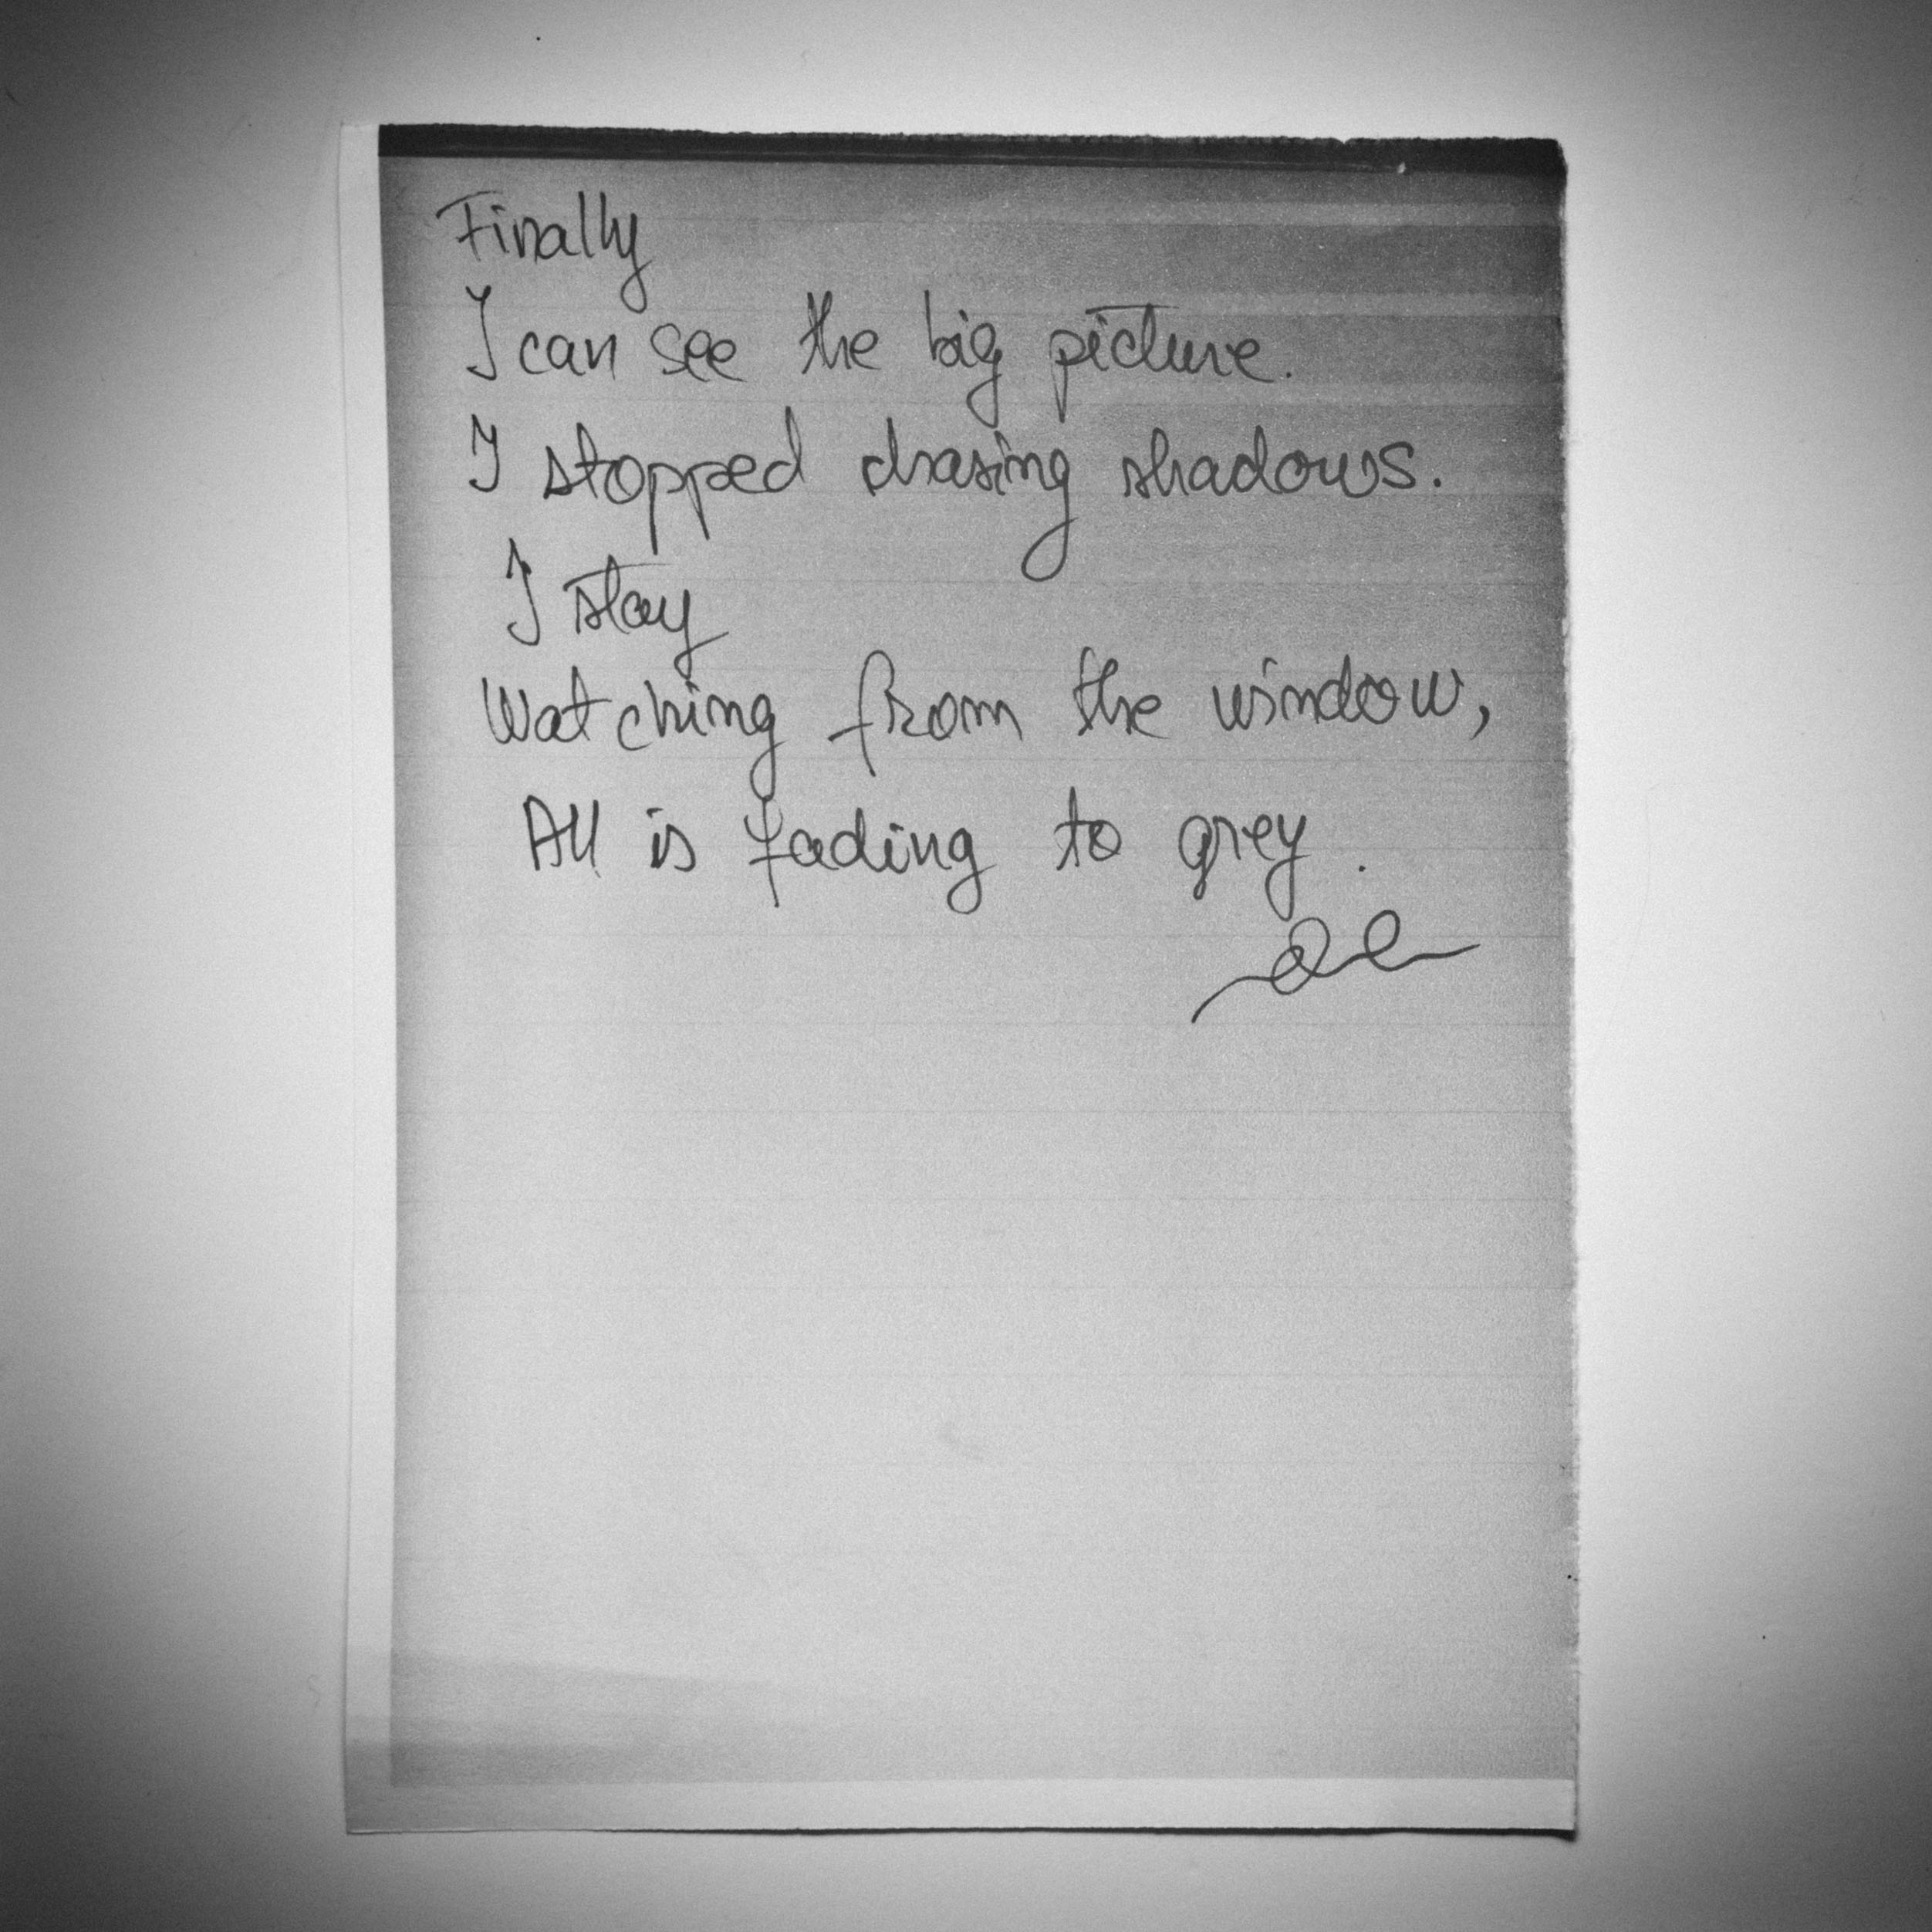 Finally
I can see the big picture.
I stopped chasing shadows.
I stay
Watching from the window,
All is fading to grey.